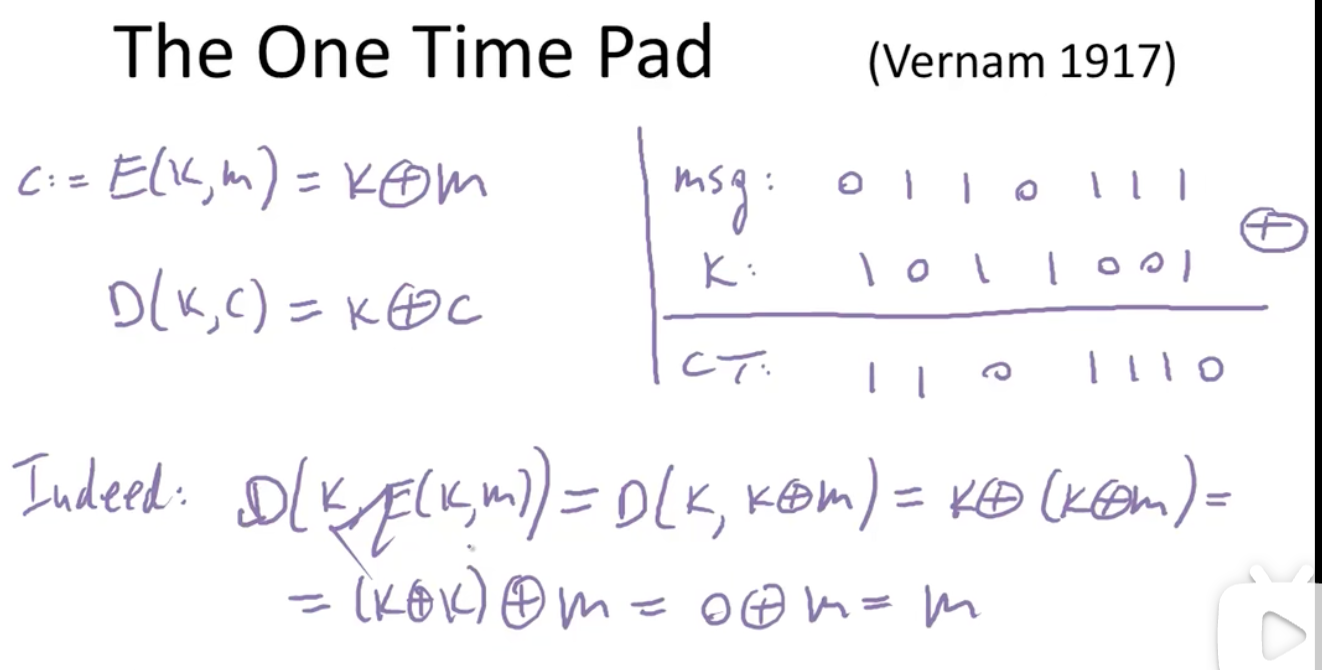 The One Time Pad (Vernam 1917)
C := E(K,m) = K⊕m
D(K,C) = K⊕C
msg: 0 1 1 0 1 1 1
⊕
K: 1 0 1 1 0 0 1
CT: 1 1 0 1 1 1 0
Indeed: D(K,E(K,m)) = D(K, K⊕m) = K⊕(K⊕m) =
= (K⊕K)⊕m = 0⊕m = m